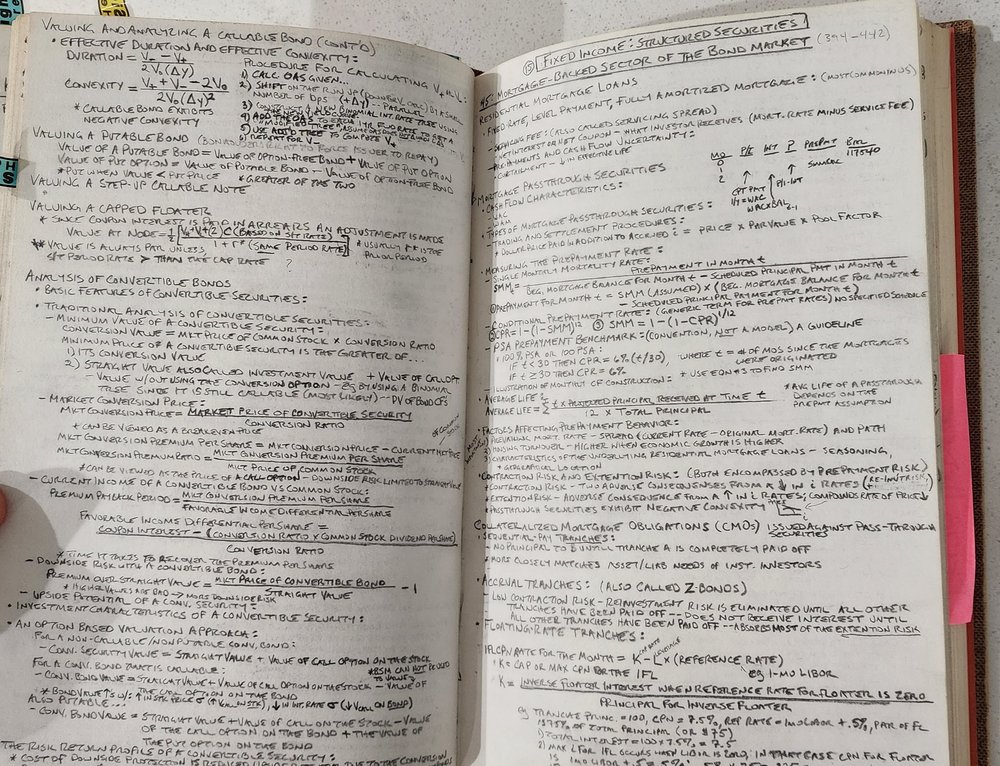 VALUING AND ANALYZING A CALLABLE BOND (CONT'D)
• EFFECTIVE DURATION AND EFFECTIVE CONVEXITY:
DURATION = V₋ − V₊
2V₀(Δy)
CONVEXITY = V₊ + V₋ − 2V₀
2V₀(Δy)²
* CALLABLE BOND EXHIBITS
NEGATIVE CONVEXITY
PROCEDURE FOR CALCULATING V₊ OR V₋:
1) CALC OAS GIVEN...
2) SHIFT ON THE RUN YIELD BY A SMALL
NUMBER OF bps (+Δy) -- PARALLEL
3) CONSTRUCT A NEW BINOMIAL INT RATE TREE USING
4) ADD THE OAS TO EACH 1 YR FLO RATE TO GET A
5) USE ADJ'D TREE TO COMPUTE V₊
6) REPEAT FOR V₋
VALUING A PUTABLE BOND (BONDHOLDERS RIGHT TO FORCE ISSUER TO REPAY)
VALUE OF A PUTABLE BOND = VALUE OF OPTION-FREE BOND + VALUE OF PUT OPTION
VALUE OF PUT OPTION = VALUE OF PUTABLE BOND − VALUE OF OPTION-FREE BOND
* PUT WHEN VALUE < PUT PRICE * GREATER OF THE TWO
VALUING A STEP-UP CALLABLE NOTE
VALUING A CAPPED FLOATER
* SINCE COUPON INTEREST IS PAID IN ARREARS AN ADJUSTMENT IS MADE
VALUE AT NODE = ½ C (BASED ON S/T RATE)
1 + r* (SAME PERIOD RATE)
* USUALLY r* IS THE
PRIOR PERIOD
* VALUE IS ALWAYS PAR UNLESS
S/T PERIOD RATE > THAN THE CAP RATE ?
ANALYSIS OF CONVERTIBLE BONDS
• BASIC FEATURES OF CONVERTIBLE SECURITIES:
• TRADITIONAL ANALYSIS OF CONVERTIBLE SECURITIES:
− MINIMUM VALUE OF A CONVERTIBLE SECURITY:
CONVERSION VALUE = MKT PRICE OF COMMON STOCK × CONVERTION RATIO
MINIMUM PRICE OF A CONVERTIBLE SECURITY IS THE GREATER OF...
1) ITS CONVERSION VALUE
2) STRAIGHT VALUE ALSO CALLED INVESTMENT VALUE + VALUE OF CALL OPT
− VALUE W/OUT USING THE CONVERSION OPTION − eg BY USING A BINOMIAL
TREE SINCE IT IS STILL CALLABLE (MOST LIKELY) -- PV OF BOND CFS
− MARKET CONVERSION PRICE:
MKT CONVERSION PRICE = MARKET PRICE OF CONVERTIBLE SECURITY
CONVERSION RATIO
* CAN BE VIEWED AS A BREAKEVEN PRICE
MKT CONVERSION PREMIUM PER SHARE = MKT CONVERSION PRICE − CURRENT MKT PRICE
OF COMMON STOCK
MKT CONVERSION PREMIUM RATIO = MKT CONVERSION PREMIUM PER SHARE
MKT PRICE OF COMMON STOCK
* CAN BE VIEWED AS THE PRICE OF A CALL OPTION − DOWNSIDE RISK LIMITED TO STRAIGHT VALUE
− CURRENT INCOME OF A CONVERTIBLE BOND VS COMMON STOCK:
PREMIUM PAYBACK PERIOD = MKT CONVERSION PREMIUM PER SHARE
FAVORABLE INCOME DIFFERENTIAL PER SHARE
FAVORABLE INCOME DIFFERENTIAL PER SHARE =
COUPON INTEREST − (CONVERSION RATIO × COMMON STOCK DIVIDEND PER SHARE)
CONVERTION RATIO
* TIME IT TAKES TO RECOVER THE PREMIUM PER SHARE
− DOWNSIDE RISK WITH A CONVERTIBLE BOND:
PREMIUM OVER STRAIGHT VALUE = MKT PRICE OF CONVERTIBLE BOND − 1
STRAIGHT VALUE
* HIGHER VALUES ARE BAD → MORE DOWNSIDE RISK
− UPSIDE POTENTIAL OF A CONV. SECURITY:
• INVESTMENT CHARACTERISTICS OF A CONVERTIBLE SECURITY:
• AN OPTION BASED VALUATION APPROACH:
FOR A NON-CALLABLE/NONPUTABLE CONV. BOND:
− CONV. SECURITY VALUE = STRAIGHT VALUE + VALUE OF CALL OPTION ON THE STOCK
FOR A CONV. BOND THAT IS CALLABLE: * BSM CAN NOT BE USED
TO VALUE
− CONV. BOND VALUE = STRAIGHT VALUE + VALUE OF CALL OPTION ON THE STOCK − VALUE OF
THE CALL OPTION ON THE BOND
* BOND VALUE ↑S W/: ↑ IN STK PRICE σ (↑ VALUE CALL ON STK), ↓ IN INT. RATE σ (↓ V CALL ON BOND)
ALSO PUTABLE...
− CONV. BOND VALUE = STRAIGHT VALUE + VALUE OF CALL ON THE STOCK − VALUE
OF THE CALL OPTION ON THE BOND + THE VALUE OF
THE PUT OPTION ON THE BOND
THE RISK RETURN PROFILE OF A CONVERTIBLE SECURITY:
* COST OF DOWNSIDE PROTECTION IS REDUCED
⑮ FIXED INCOME: STRUCTURED SECURITIES
MORTGAGE-BACKED SECTOR OF THE BOND MARKET (394-442)
RESIDENTIAL MORTGAGE LOANS
• FIXED-RATE, LEVEL PAYMENT, FULLY AMORTIZED MORTGAGE: (MOST COMMON IN US)
− SERVICING FEE: (ALSO CALLED SERVICING SPREAD)
− NET INTEREST OR NET COUPON − WHAT INVESTOR RECEIVES (MORT. RATE MINUS SERVICE FEE)
• PREPAYMENTS AND CASH FLOW UNCERTAINTY:
− CURTAILMENT − ↓ IN EFFECTIVE LIFE
MO P/I INT P PREPMT BAL
0 117540
1
2
SMM × BAL
CPT PMT P/I-INT
I/Y = WAC
WAC × BAL t-1
MORTGAGE PASSTHROUGH SECURITIES
• CASH FLOW CHARACTERISTICS:
− WAC
− WAM
• TYPES OF MORTGAGE PASSTHROUGH SECURITIES:
− TRADING AND SETTLEMENT PROCEDURES:
* DOLLAR PRICE PAID IN ADDITION TO ACCRUED i = PRICE × PAR VALUE × POOL FACTOR
• MEASURING THE PREPAYMENT RATE:
− SINGLE MONTHLY MORTALITY RATE:
SMM = PREPAYMENT IN MONTH t
BEG. MORTGAGE BALANCE FOR MONTH t − SCHEDULED PRINCIPAL PMT IN MONTH t
① PREPAYMENT FOR MONTH t = SMM (ASSUMED) × (BEG. MORTGAGE BALANCE FOR MONTH t
− SCHEDULED PRINCIPAL PAYMENT FOR MONTH t)
− CONDITIONAL PREPAYMENT RATE: (GENERIC TERM FOR PREPMT RATES) NO SPECIFIED SCHEDULE
② CPR = 1 − (1 − SMM)¹² ③ SMM = 1 − (1 − CPR)^1/12
− PSA PREPAYMENT BENCHMARK: (CONVENTION, NOT A MODEL) A GUIDELINE
* 100% PSA OR 100 PSA:
IF t < 30 THEN CPR = 6% (t/30) WHERE t = # OF MOS SINCE THE MORTGAGES
WERE ORIGINATED
IF t ≥ 30 THEN CPR = 6%
− ILLUSTRATION OF MONTHLY CF CONSTRUCTION: * USE EQN #3 TO FIND SMM
• AVERAGE LIFE:
AVERAGE LIFE = Σ t × PROJECTED PRINCIPAL RECEIVED AT TIME t
12 × TOTAL PRINCIPAL
* AVG LIFE OF A PASSTHROUGH
DEPENDS ON THE
PREPMT ASSUMPTION
• FACTORS AFFECTING PREPAYMENT BEHAVIOR:
1) PREVAILING MORT. RATE − SPREAD (CURRENT RATE − ORIGINAL MORT. RATE) AND PATH
2) HOUSING TURNOVER − HIGHER WHEN ECONOMIC GROWTH IS HIGHER
3) CHARACTERISTICS OF THE UNDERLYING RESIDENTIAL MORTGAGE LOANS − SEASONING,
* GEOGRAPHICAL LOCATION
• CONTRACTION RISK AND EXTENTION RISK: (BOTH ENCOMPASSED BY PREPAYMENT RISK)
* CONTRACTION RISK − TWO ADVERSE CONSEQUENSES FROM A ↓ IN i RATES (+ RE-INV RISK)
* EXTENTION RISK − ADVERSE CONSEQUENCE FROM A ↑ IN i RATES; COMPOUNDS RATE OF PRICE ↓
* PASSTHROUGH SECURITIES EXHIBIT NEGATIVE CONVEXITY
COLLATERALIZED MORTGAGE OBLIGATIONS (CMOS) ISSUED AGAINST PASS-THROUGH
SECURITIES
• SEQUENTIAL-PAY TRANCHES:
− NO PRINCIPAL TO B UNTIL TRANCHE A IS COMPLETELY PAID OFF
* MORE CLOSELY MATCHES ASSET/LIAB NEEDS OF INST. INVESTORS
• ACCRUAL TRANCHES: (ALSO CALLED Z-BONDS)
− LOW CONTRACTION RISK − REINVESTMENT RISK IS ELIMINATED UNTIL ALL OTHER
TRANCHES HAVE BEEN PAID OFF -- DOES NOT RECEIVE INTEREST UNTIL
ALL OTHER TRANCHES HAVE BEEN PAID OFF -- ABSORBS MOST OF THE EXTENTION RISK
• FLOATING-RATE TRANCHES:
IFL CPN RATE FOR THE MONTH = K − L × (REFERENCE RATE)
* K = CAP OR MAX CPN FOR THE IFL eg 1-MO LIBOR
K = INVERSE FLOATER INTEREST WHEN REFERENCE RATE FOR FLOATER IS ZERO
PRINCIPAL FOR INVERSE FLOATER
eg TRANCHE PRINC. = 100, CPN = 7.5%, REF RATE = 1MO LIBOR + .5%, PAR OF FL
IS 75% OF TOTAL PRINCIPAL (OR $75)
1) TOTAL INTEREST = 100 × 7.5% = 7.5
2) MAX L FOR IFL OCCURS WHEN LIBOR IS ZERO; IN THAT CASE CPN FOR FLOATER